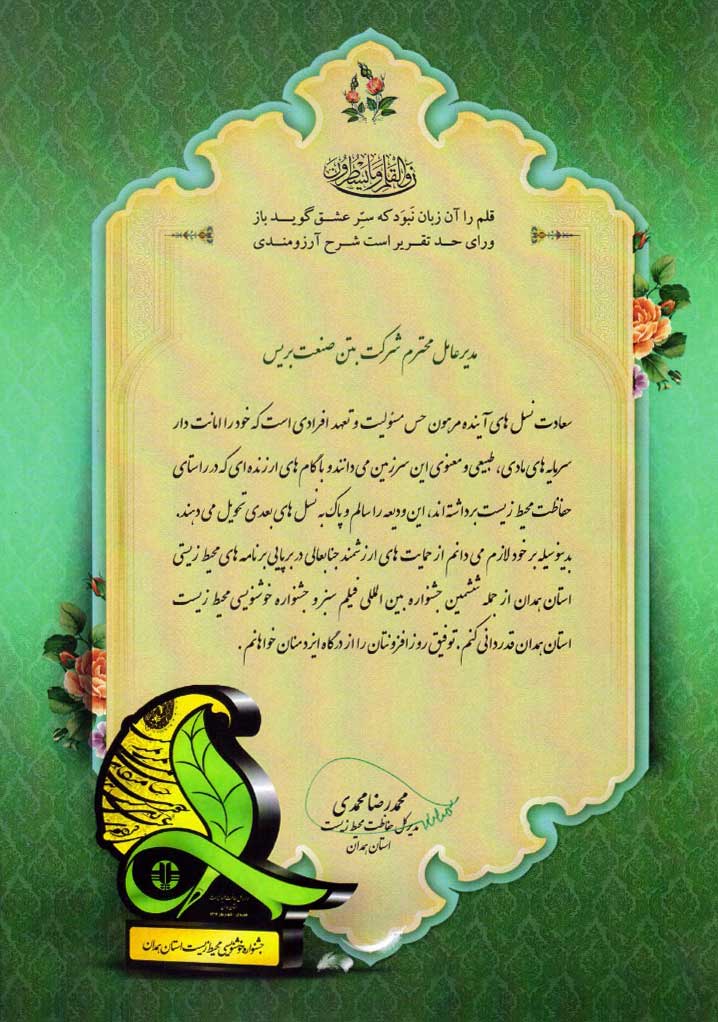 ن والقلم وما یسطرون
قلم را آن زبان نَبوَد که سرِّ عشق گوید باز
ورای حد تقریر است شرح آرزومندی
مدیرعامل محترم شرکت بتن صنعت بریس
سعادت نسل های آینده مرهون حس مسئولیت و تعهد افرادی است که خود را امانت دار
سرمایه های مادی، طبیعی و معنوی این سرزمین می دانند و با گام های ارزنده ای که در راستای
حفاظت محیط زیست برداشته اند، این ودیعه را سالم و پاک به نسل های بعدی تحویل می دهند.
بدینوسیله بر خود لازم می دانم از حمایت های ارزشمند جنابعالی در برپایی برنامه های محیط زیستی
استان همدان از جمله ششمین جشنواره بین المللی فیلم سبز و جشنواره خوشنویسی محیط زیست
استان همدان قدردانی کنم. توفیق روز افزونتان را از درگاه ایزد منان خواهانم.
محمد رضا محمدی
مدیر کل حفاظت محیط زیست
استان همدان
جشنواره خوشنویسی محیط زیست استان همدان